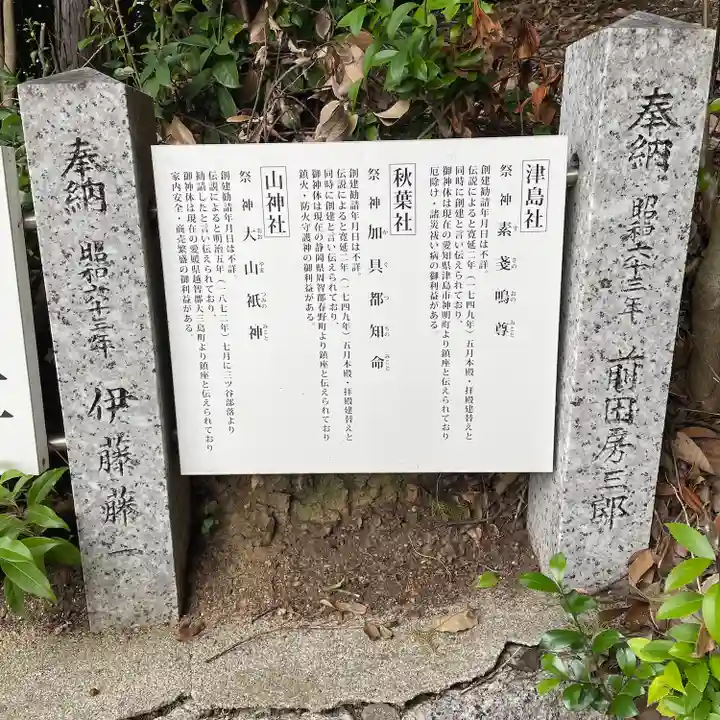 奉納 昭和六十三年 前田房三郎
津島社
祭神 素戔嗚尊
す さの おの みこと
創建勧請年月日は不詳。
伝説によると寛延二年(一七四九年)五月本殿・拝殿建替えと
同時に創建と言い伝えられており、
御神体は現在の愛知県津島市神明町より鎮座と伝えられており
厄除け・諸災祓い病の御利益がある。
秋葉社
祭神 加具都知命
か ぐ つ ちの みこと
創建勧請年月日は不詳。
伝説によると寛延二年(一七四九年)五月本殿・拝殿建替えと
同時に創建と言い伝えられており、
御神体は現在の静岡県周智郡春野町より鎮座と伝えられており
鎮火・防火守護神の御利益がある。
山神社
祭神 大山祇神
おお やま づみの みこと
創建勧請年月日は不詳。
伝説によると明治五年(一八七二年)七月に三ツ谷部落より
勧請したと言い伝えられており、
御神体は現在の愛媛県越智郡大三島町より鎮座と伝えられており
家内安全・商売繁盛の御利益がある。
奉納 昭和六十三年 伊藤藤一